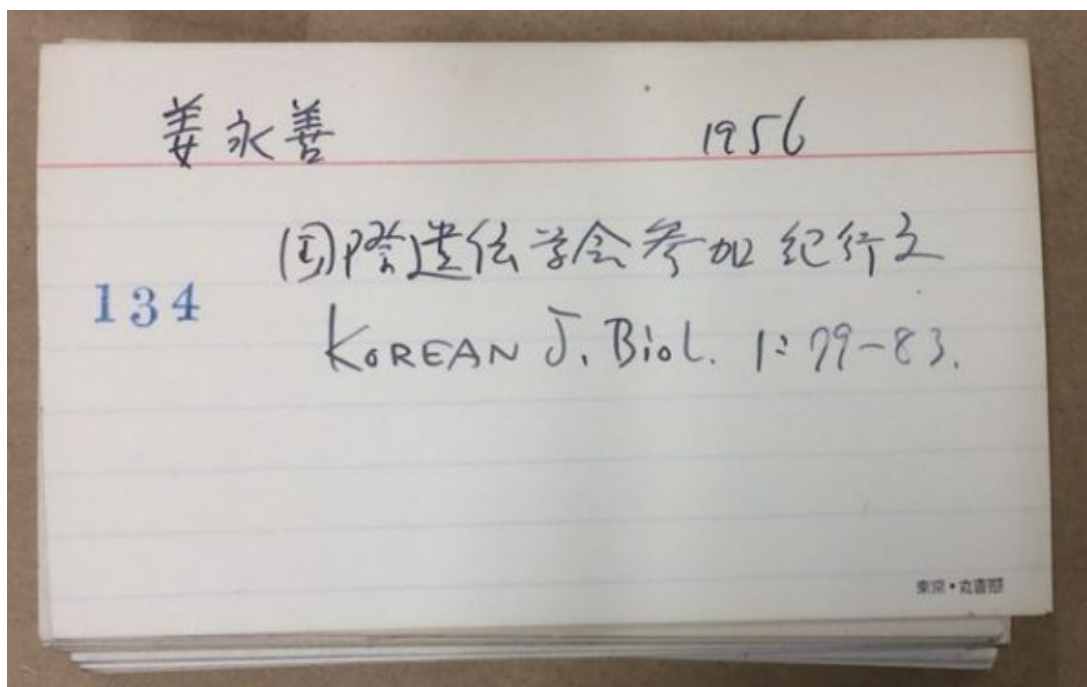 姜永善 1956
国際遺伝学会参加紀行文
134
KOREAN J. Biol. 1: 79-83.
東京・丸善製